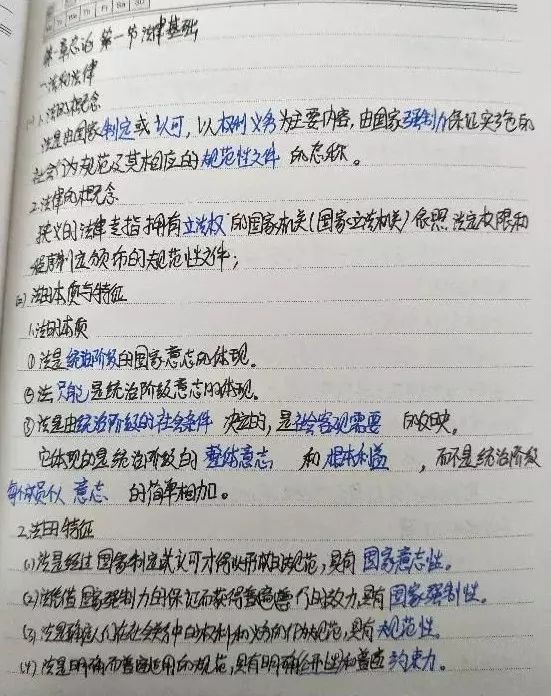 Tu We Th Fr Sa Su
第一章总论 第一节法律基础
一.法和法律
(一)1.法的概念
法是由国家制定或认可,以权利义务为主要内容,由国家强制力保证实施的
社会行为规范及其相应的规范性文件的总称。
2.法律的概念
狭义的法律专指拥有立法权的国家机关(国家立法机关)依照法定权限和
程序制定颁布的规范性文件;
(二)法的本质与特征
1.法的本质
①法是统治阶级的国家意志的体现。
②法只能是统治阶级意志的体现。
③法是由统治阶级的社会条件决定的,是社会客观需要的反映。
它体现的是统治阶级的整体意志和根本利益,而不是统治阶级
每个成员个人意志的简单相加。
2.法的特征
(1)法是经过国家制定或认可才得以形成的规范,具有国家意志性。
(2)法凭借国家强制力的保证而获得普遍遵行的效力,具有国家强制性。
(3)法是确定人们在社会关系中的权利和义务的行为规范,具有规范性。
(4)法是明确而普遍适用的规范,具有明确公开性和普遍约束力。